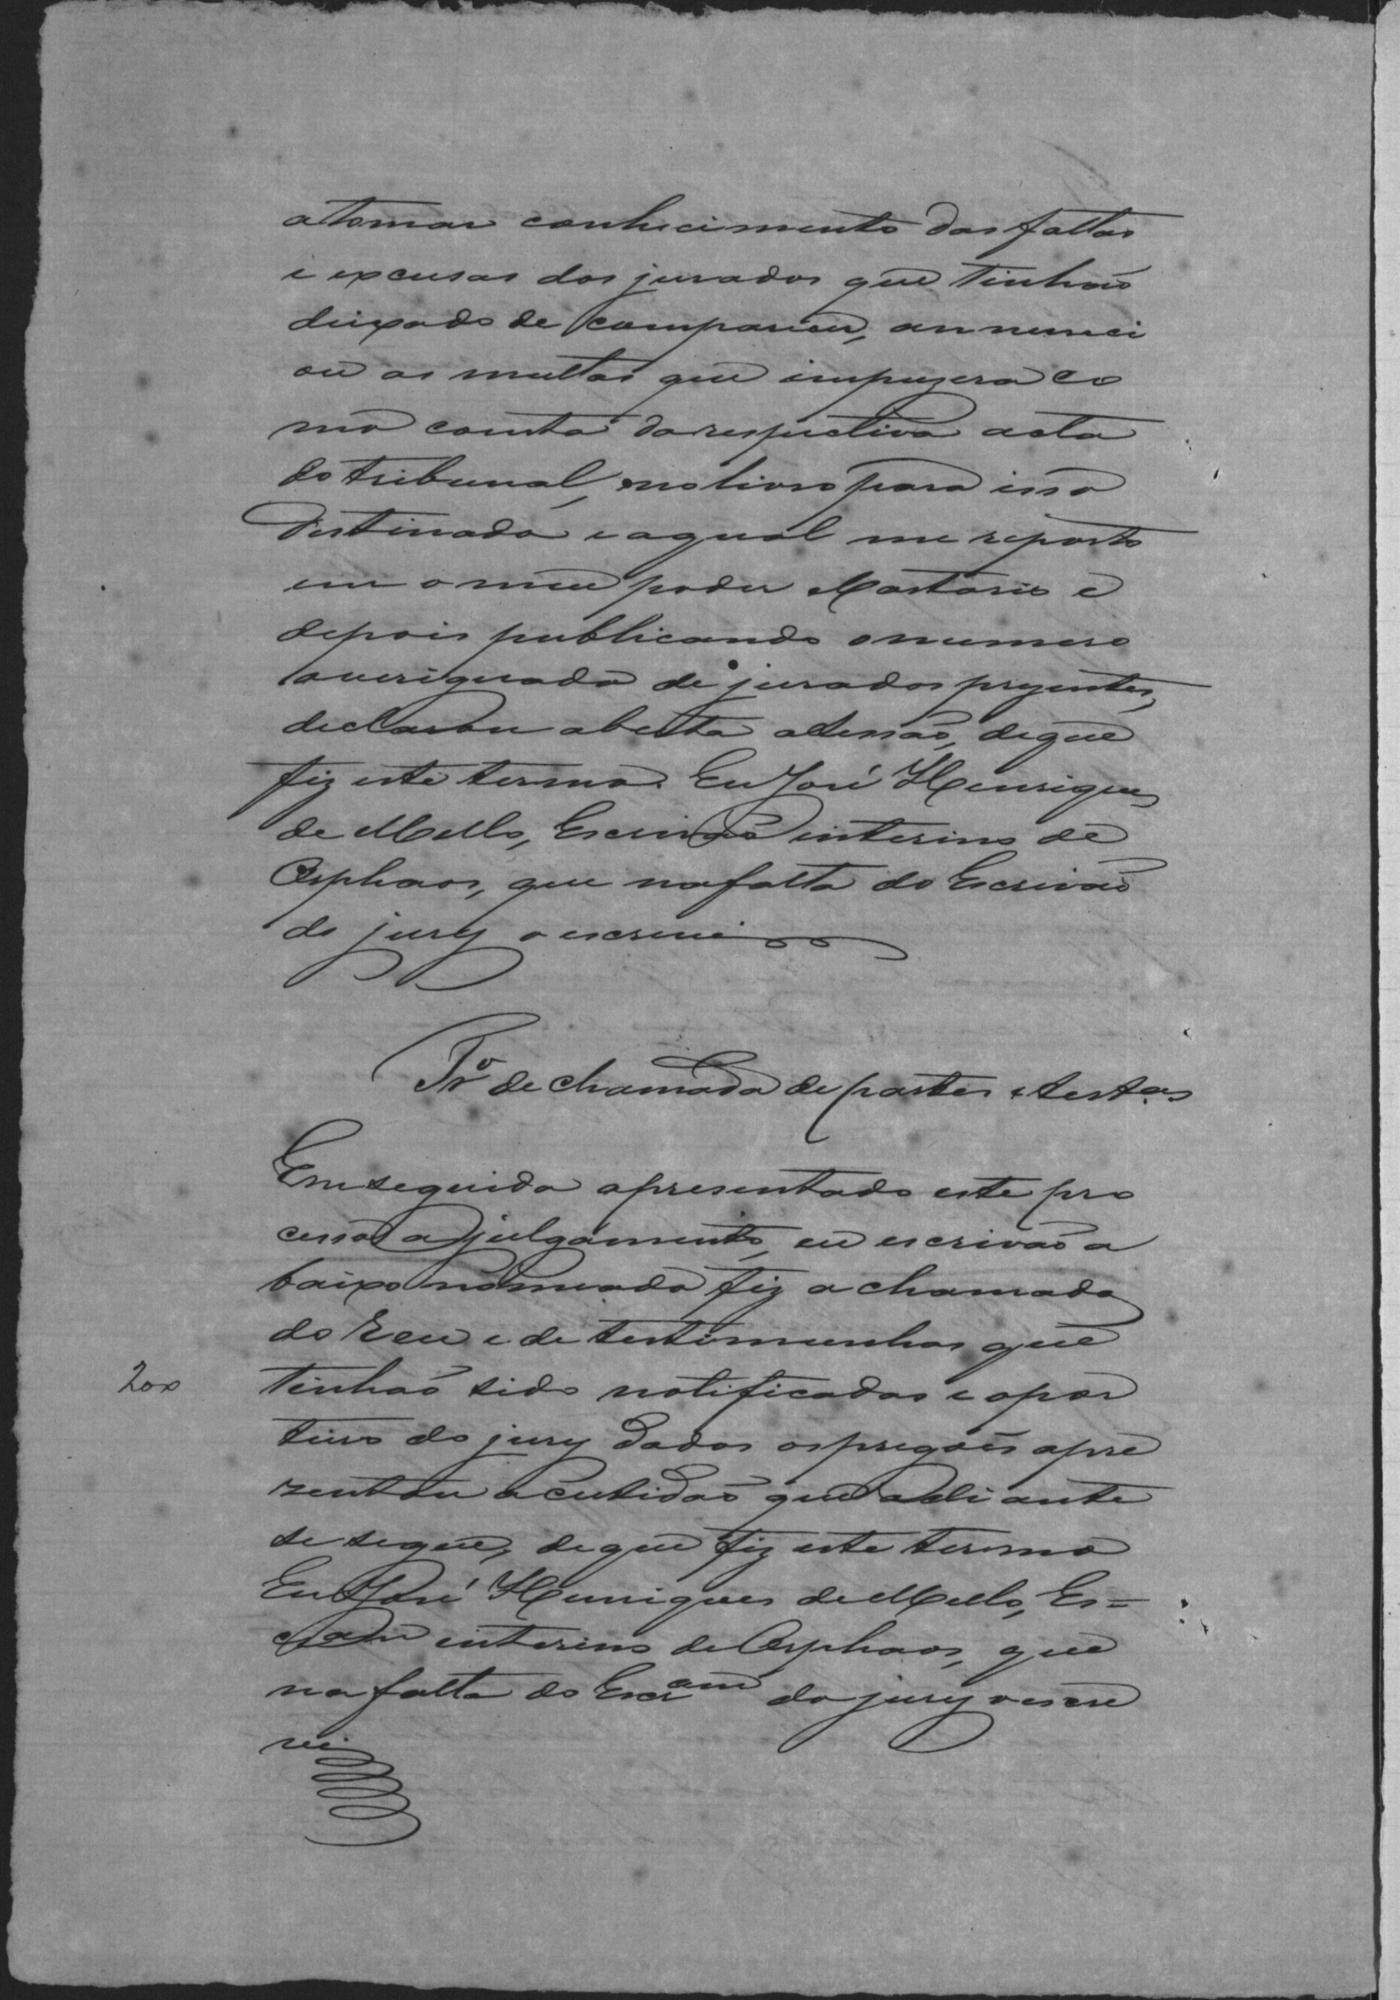 a tomar conhecimento das faltas
e excusas dos jurados que tinhão
deixado de comparecer, annunci
ou as multas que impuzera co
mo consta da respectiva acta
do tribunal, no livro para isso
destinado e a qual me reporto
em o meu poder e Cartorio e
depois publicando o numero
averiguado de jurados prezentes,
declarou aberta a Sessão, de que
fiz este termo. Eu José Henriques
de Mello, Escrivão interino de
Orphaos, que na falta do Escrivão
do jury o escrevi
Tro de chamada de partes e testas
Em seguida apresentado este pro
cesso a julgamento, eu escrivão a
baixo nomeado fiz a chamada
do Reu e de testimunhas que
200
tinhão sido notificadas e o por
teiro do jury dados os pregoes apre
zentou a certidão que adiante
se segue, de que fiz este termo
Eu José Henriques de Mello, Es=
cram interino de Orphaos, que
na falta do Escram do jury o escre
vi